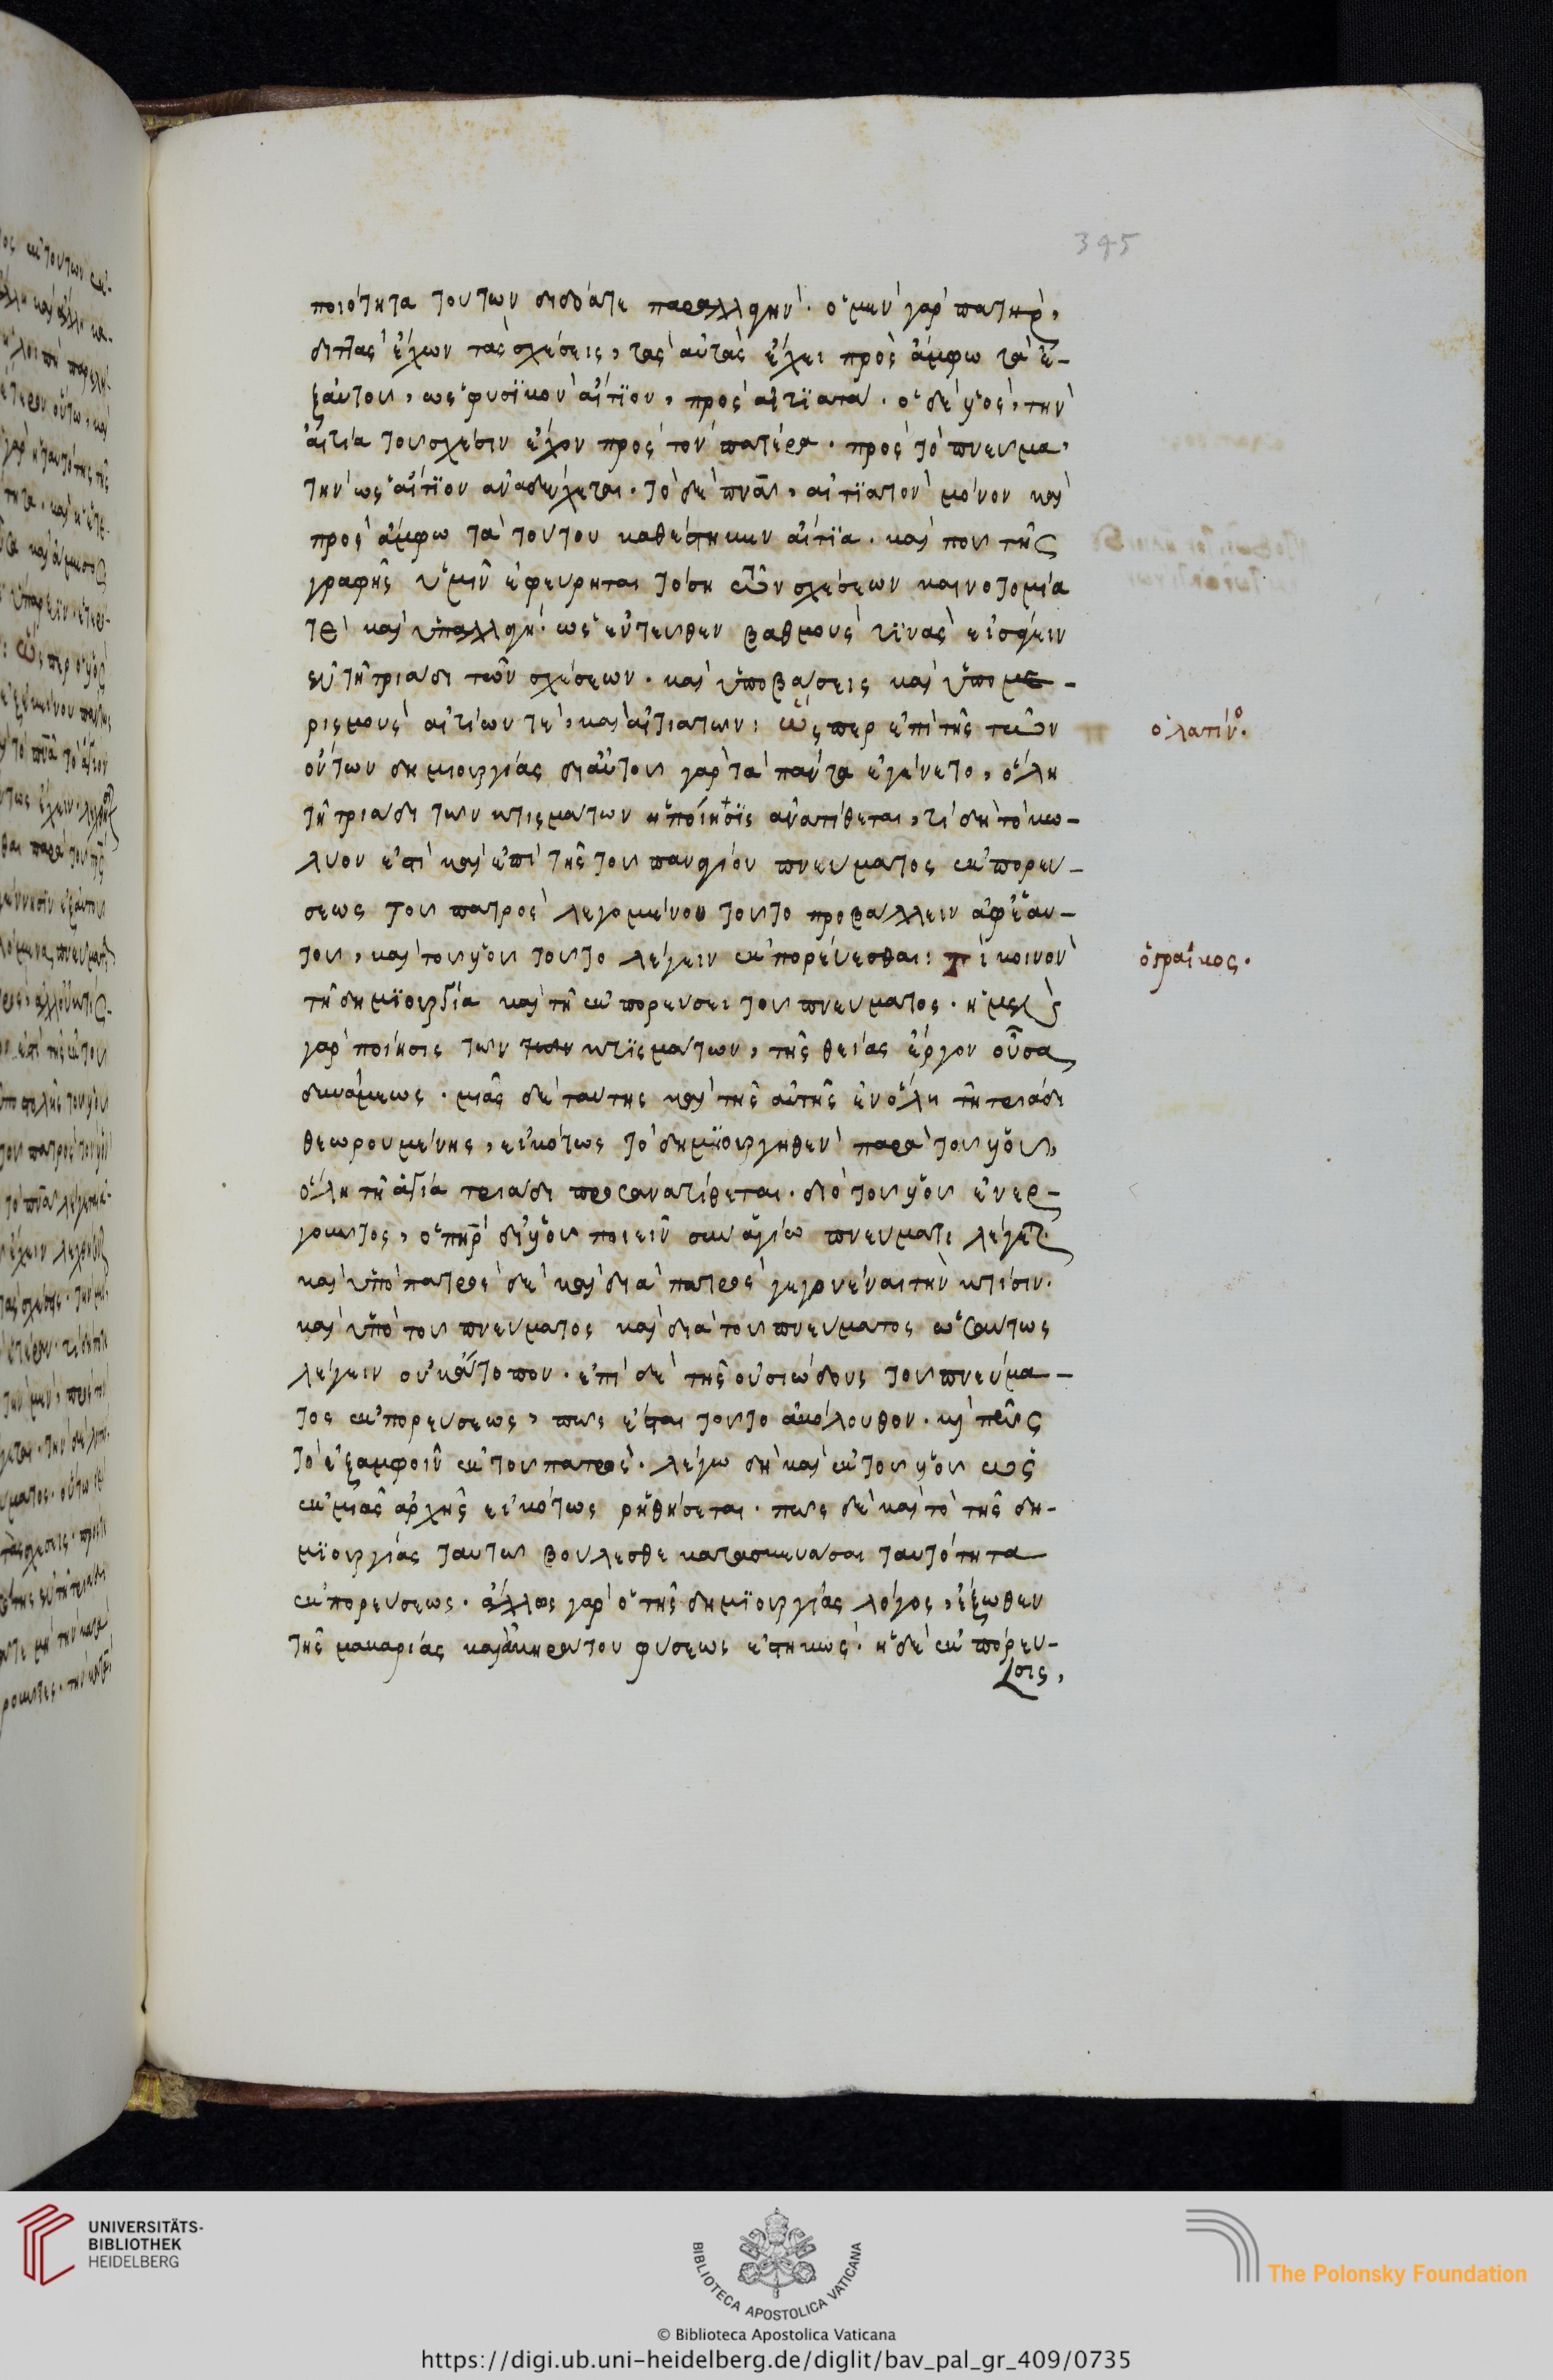 345
ποιότητα τούτων διδόατε παραλλαγήν. ὁ μὲν γὰρ πατὴρ,
διττὰς ἔχων τὰς σχέσεις, τὰς αὐτὰς ἔχει πρὸς ἄμφω τὰ ἐ-
ξαύτου, ὡς φυσϊκὸν αἴτϊον, πρὸς αἰτϊατά. ὁ δὲ ὑὸς, τὴν
αἰτία του σχέσιν ἔχον πρὸς τὸν πατέρα. πρὸς τὸ πνεῦμα,
τὴν ὡς αἴτϊον ἀναδέχεται. τὸ δὲ πνᾶ, αἰτϊατὸν μόνον καὶ
πρὸς ἄμφω τὰ τούτου καθέστηκεν αἴτϊα. καὶ που τῆς
γραφῆς ὑμῖν ἐφεύρηται τόση τῶν σχέσεων καινοτομία
τὲ καὶ ὑπαλλαγή. ὡς ἐντεῦθεν βαθμοὺς τϊνὰς εἰσάγειν
ἐν τῆ τριάδι τῶν σχέσεων. καὶ ὑποβάσεις καὶ ὑπομε-
ρισμοὺς αἰτίων τὲ, καὶ αἰτιατῶν: ὥς περ ἐπὶ τῆς τῶν
ὁ λατίνο.
ὄντων δημιουργίας δι αὐτοῦ γὰρ τὰ πάντα ἐγένετο, ὅλη
τῆ τριάδι τῶν κτισμάτων ἡ ποίησϊς ἀνατίθεται, τί δὴ τὸ κω-
λύον ἐστὶ καὶ ἐπὶ τῆς του παναγίου πνεύματος ἐκπορεύ-
σεως του πατρὸς λεγομένου τοῦτο προβάλλειν ἀφ' ἑαυ-
τοῦ, καὶ του ὑοῦ τοῦτο λέγειν ἐκπορεύεσθαι: τί κοινὸν
ὁ γραικος.
τῆ δημϊουργία καὶ τῆ ἐκπορεύσει του πνεύματος. ἡ μὲν
γὰρ ποίησις τῶν των κτϊσμάτων, τῆς θείας ἔργον οὖσα
δυνάμεως. μιᾶς δὲ ταύτης καὶ τῆς αὐτῆς ἐν ὅλη τῆ τριάδι
θεωρουμένης, εἰκότως τὸ δημϊουργηθὲν παρὰ του ὑοῦ,
ὅλη τῆ ἁγία τριάδι προσανατίθεται. διὸ του ὑοῦ ἐνερ-
γοῦντος, ὁ πῆρ δι' ὑοῦ ποιεῖν συν ἁγίω πνεύματι λέγετ.
καὶ ὑπὸ πατρὸς δὲ καὶ διὰ πατρὸς γεγονέναι τὴν κτίσιν.
καὶ ὑπὸ του πνεύματος καὶ διὰ του πνεύματος ὡσαύτως
λέγειν οὐκ ἄτοπον. ἐπὶ δὲ τῆς οὐσιώδους του πνεύμα-
τος ἐκπορεύσεως, πως ἔσται τοῦτο ἀκόλουθον. καὶ πῶς
τὸ ἐξαμφοῖν ἐκ του πατρὸς. λέγω δὴ καὶ ἐκ του ὑοῦ ὡς
ἐκ μιᾶς ἀρχῆς εἰκότως ῥηθήσεται. πως δὲ καὶ τὸ τῆς δη-
μϊουργίας ταύτων βούλεσθε κατασκευάσαι ταυτότητα
ἐκπορεύσεως. ἄλλως γὰρ ὁ τῆς δημϊουργίας λόγος, ἔξωθεν
τῆς μακαρίας καὶ ἀκηράτου φύσεως ἐστηκώς. ἡ δὲ ἐκ πόρευ-
σις,
UNIVERSITÄTS-
BIBLIOTHEK
HEIDELBERG
BIBLIOTECA APOSTOLICA VATICANA
The Polonsky Foundation
© Biblioteca Apostolica Vaticana
https://digi.ub.uni-heidelberg.de/diglit/bav_pal_gr_409/0735